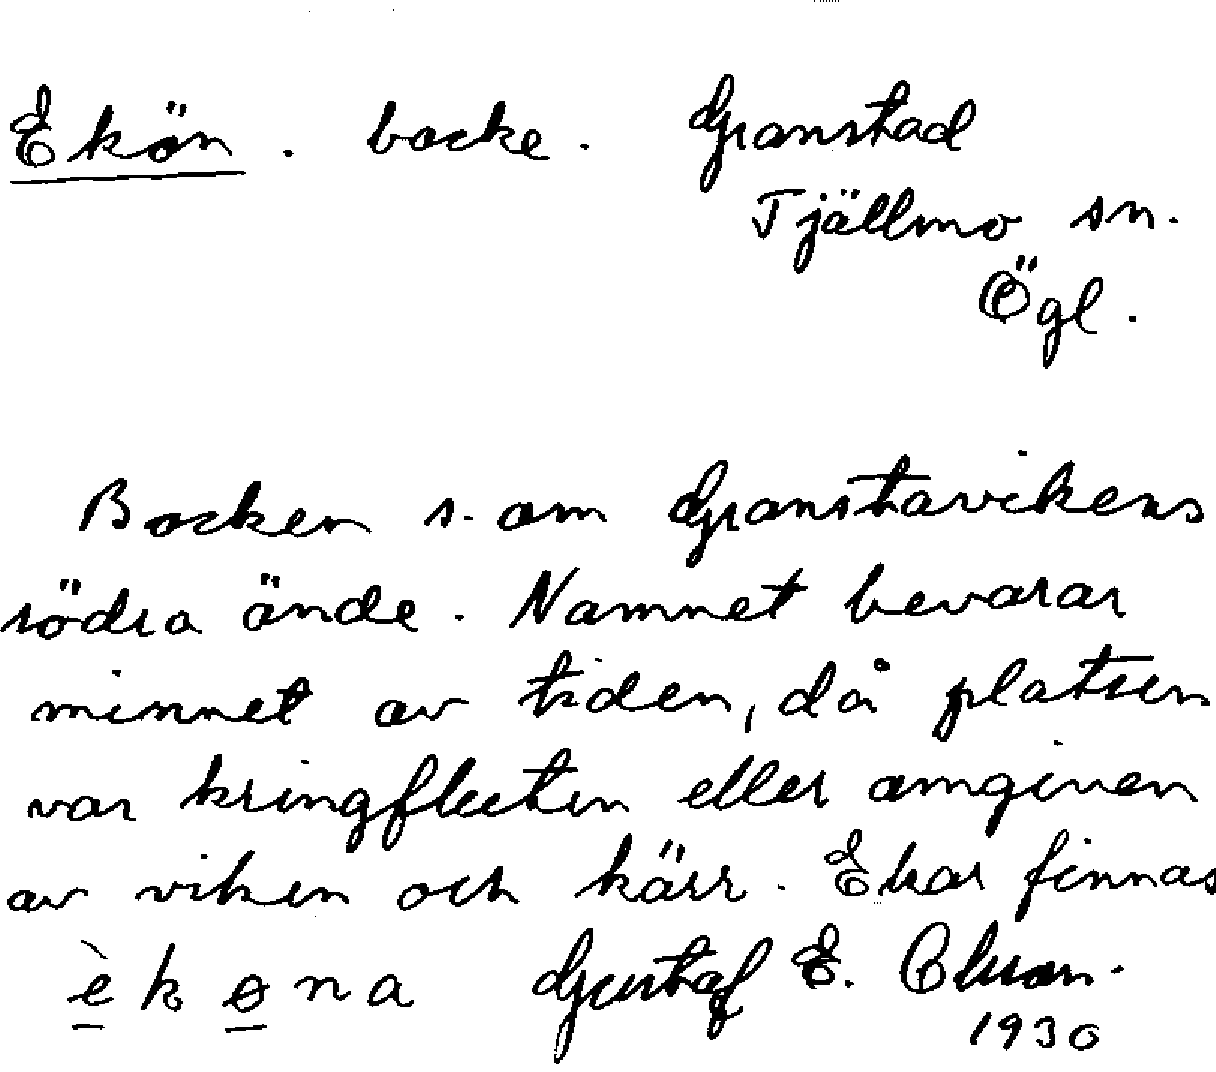 Ekön. backe. Granstad
Tjällmo sn.
Ögl.
Backen s. om Granstavikens
södra ände. Namnet bevarar
minnet av tiden, då platsen
var kringfluten eller omgiven
av viken och kärr. Ekar finnas
è k ø n a Gustaf E. Olsson.
1930